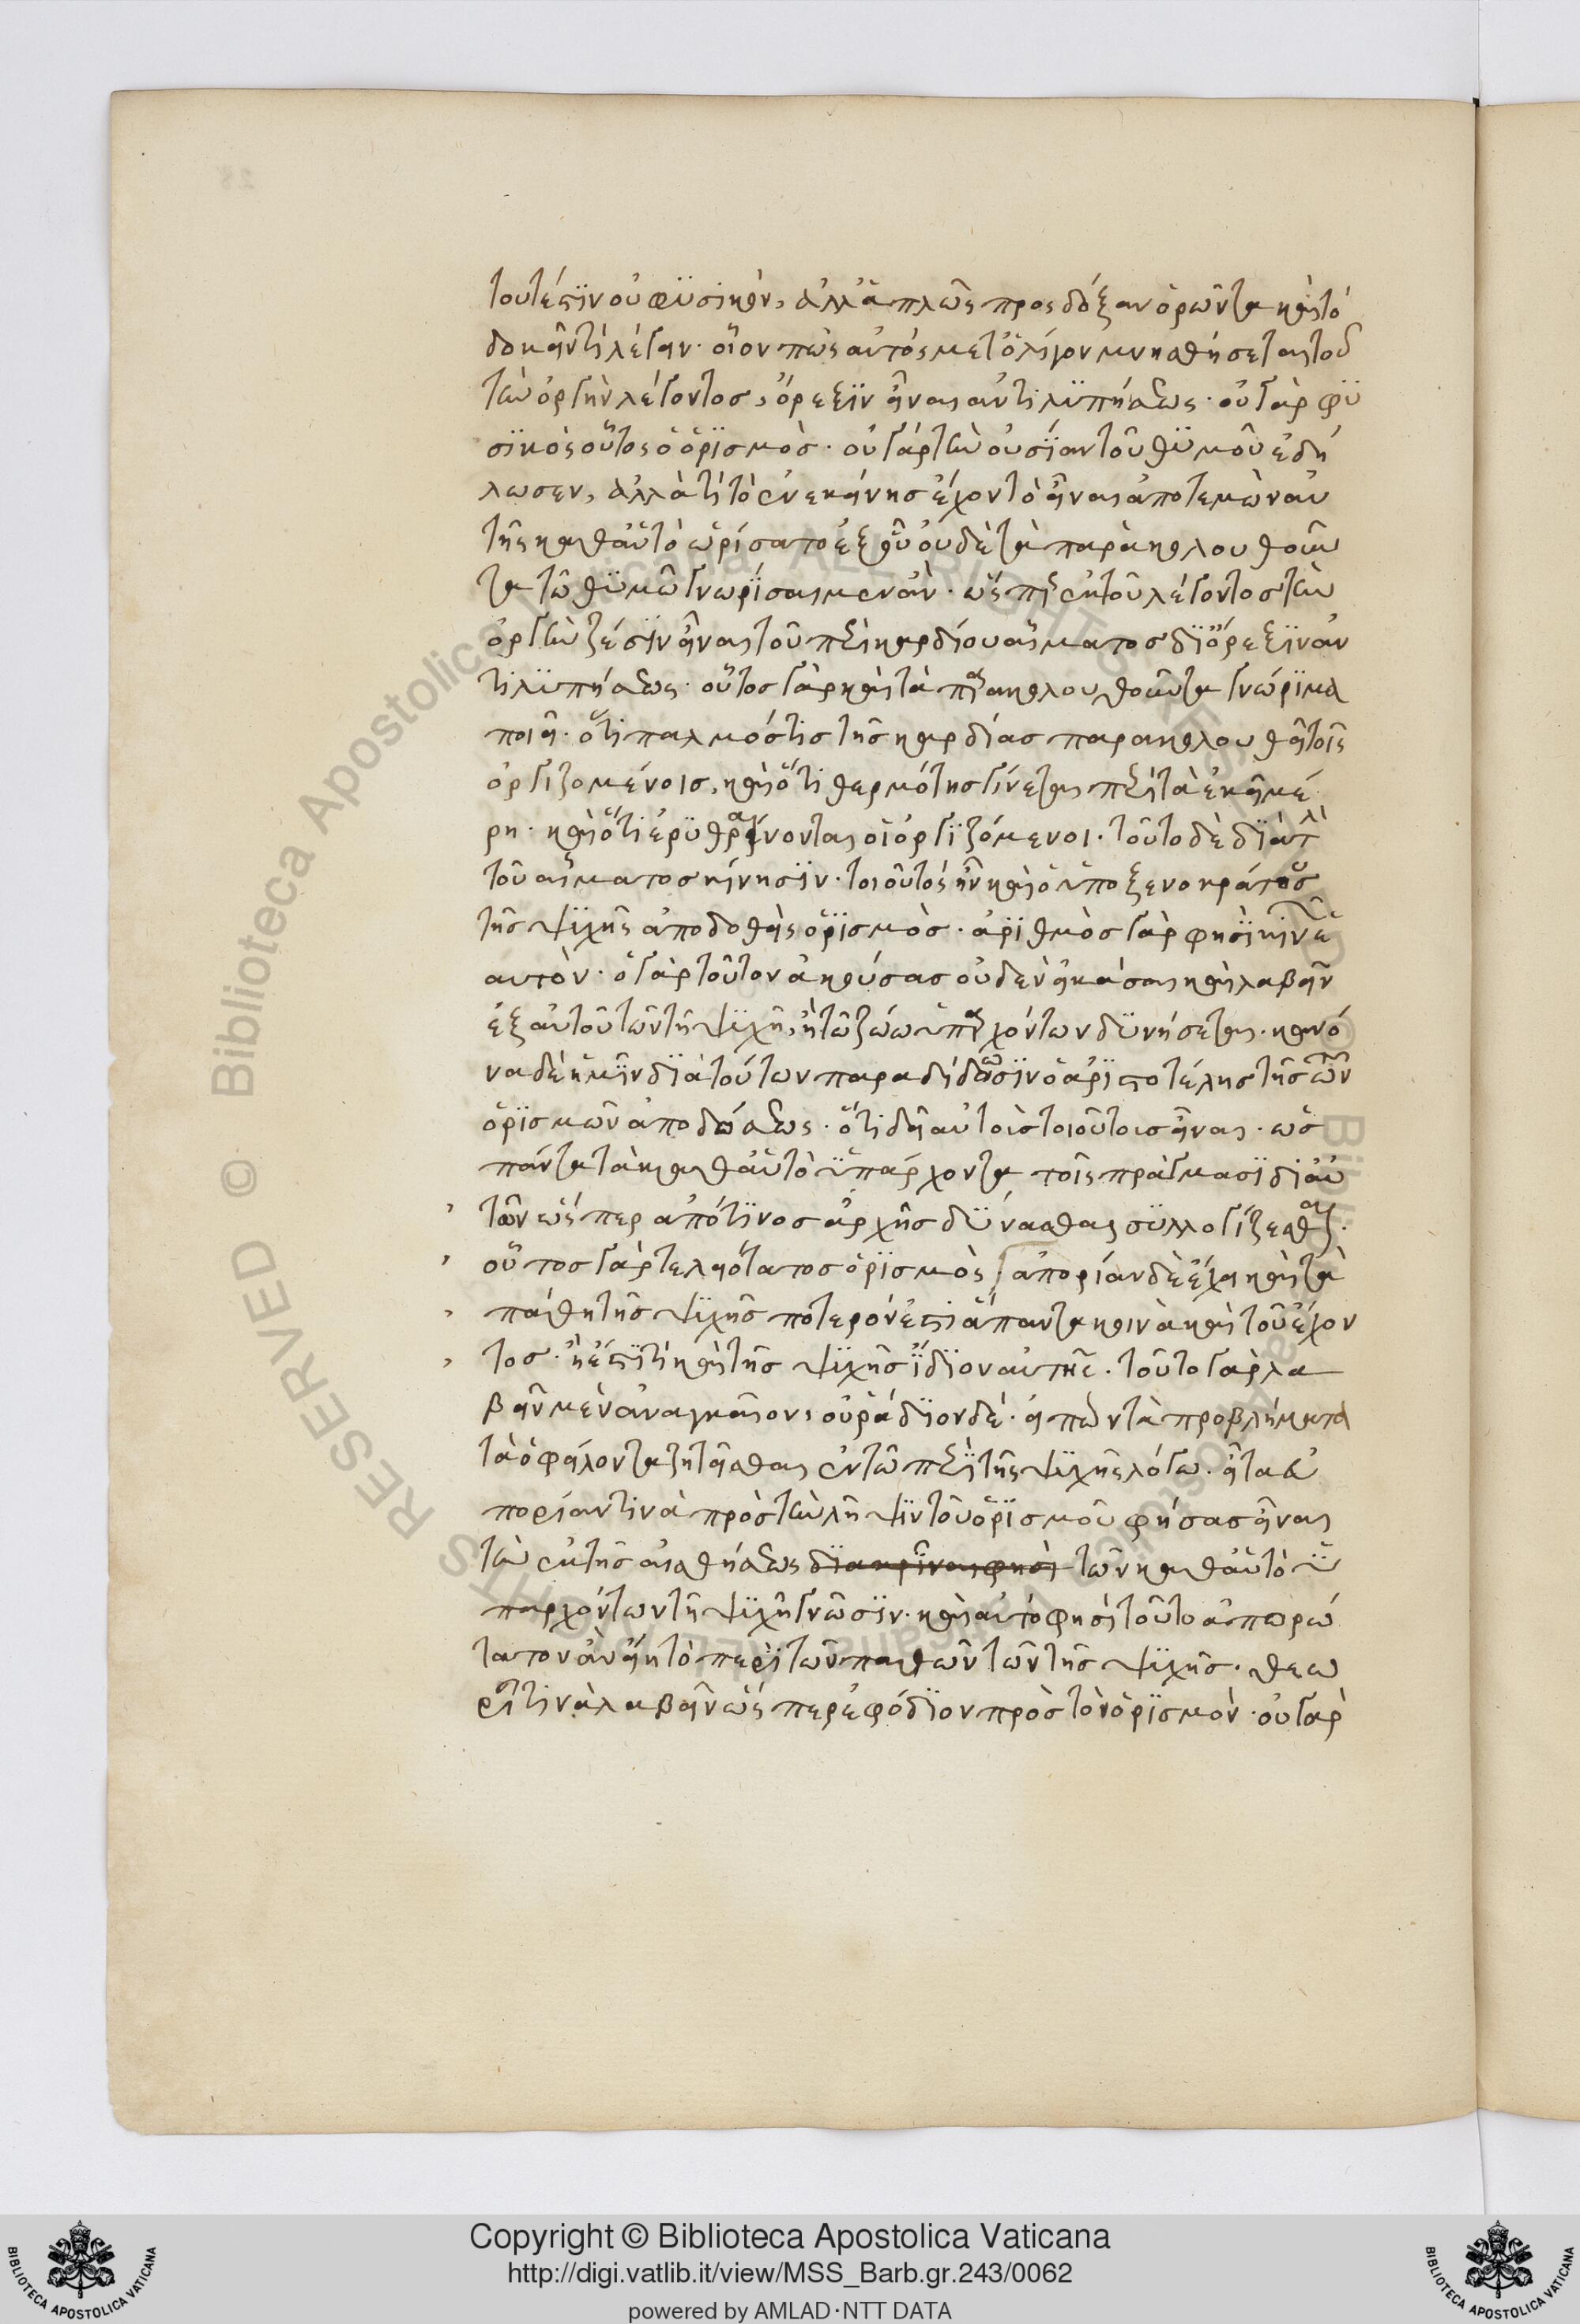 τουτέστιν οὐ φϋσικὸν, ἀλλ' ἁπλῶς προς δόξαν ὁρῶντα καὶ τὸ
δοκεῖν τὶ λέγειν· οἷον πῶς αὐτός μετ' ὀλίγον μνησθήσεται τοῦ
τὴν ὀργὴν λέγοντος, ὄρεξϊν εἶναι ἀντιλϋπήσεως· οὐ γὰρ φϋ
σϊκὸς οὗτος ὁ ὁρϊσμὸς· οὐ γάρ τὴν οὐσΐαν τοῦ θϋμοῦ ἐδή
λωσεν, ἀλλὰ τί τὸ ἐν ἐκείνης ἔχον τὸ εἶναι ἀποτεμὼν αὐ
τῆς καθαὑτὸ ὡρίσατο ἐξ οὗ οὐδὲ τὰ παρακολουθοῦν
τα τῶ θϋμῶ γνωρΐσαι μεν ἂν· ὥς περ ἐκ τοῦ λέγοντος τὴν
ὀργὴν ζέσϊν εἶναι τοῦ περὶ καρδίου αἵματος δϊ' ὄρεξϊν ἀν
τιλϋπήσεως· οὗτος γὰρ καὶ τὰ παρακολουθοῦντα γνώρϊμα
ποιεῖ· ὅτι παλμός τις τῆς καρδίας παρακολουθεῖ τοῖς
ὀργιζομένοις, καὶ ὅτι θερμότης γίνεται περὶ τὰ ἐκεῖ μέ
ρη· καὶ ὅτι ἐρϋθραίνονται οἱ ὀργϊζόμενοι· τοῦτο δὲ δϊὰ τὴν
τοῦ αἵματος κίνησϊν· τοιοῦτός ἦν καὶ ὁ ὑπο ξενοκράτους
τῆς ψϋχῆς ἀποδοθεὶς ὁρϊσμὸς· ἀρϊθμὸς γὰρ φησϊ κινεῖ
αυτὸν· ὁ γὰρ τοῦτον ἀκούσας οὐδὲν εἰκάσαι καὶ λαβεῖν
ἐξ αὐτοῦ τῶν τῆ ψϋχῆ, ἢ τῶ ζώω ὑπαρχόντων δϋνήσεται· κανό
να δὲ ἡμῖν δϊὰ τούτων παραδίδωσϊν ὁ ἀρϊστοτέλης τῆς τῶν
ὁρϊσμῶν ἀποδώσεως· ὅτι δεῖ αὐτοὶς τοιοῦτοις εἶναι· ὡς
πάντα τὰ καθαὑτὸ ϋπάρχοντα τοῖς πράγμασϊ δι' αὐ
τῶν ὥς περ ἀπό τϊνος ἀρχῆς δϋνασθαι σϋλλογίζεσθαι·
οὗτος γὰρ τελειότατος ὁρϊσμὸς ἀπορίαν δὲ ἔχει καὶ τὰ
πάθη τῆς ψϋχῆς πότερόν ἐστι ἅπαντα κοινὰ καὶ τοῦ ἔχον
τος· ἢ ἔστϊ τὶ καὶ τῆς ψϋχῆς ΐδϊον αὐτῆς· τοῦτο γαρ λα
βεῖν μὲν ἀναγκαῖον, οὐ ῥάδϊον δέ· εἰπὼν τὰ προβλήματα
τὰ ὀφείλοντα ζητεῖσθαι ἐν τῶ περὶ τῆς ψϋχῆς λόγω· εἶτα ἀ
πορίαν τινὰ πρὸς τὴν λῆψϊν τοῦ ὁρϊσμοῦ φήσας εἶναι
τὴν ἐκ τῆς αἰσθήσεως δϊακρῖναι φησὶ τῶν καθαὑτὸ ϋ
παρχόντων τῆ ψϋχῆ γνῶσϊν· καὶ αὐτό φησὶ τοῦτο ἀπορώ
τατον ἂν εἴη τὸ περὶ τῶν παθῶν τῶν τῆς ψϋχῆς· θεω
ρῆτινα λαβεῖν ὥς περ ἐφόδϊον πρὸς τὸν ὁρϊσμόν· οὐ γαρ
Copyright © Biblioteca Apostolica Vaticana
http://digi.vatlib.it/view/MSS_Barb.gr.243/0062
powered by AMLAD·NTT DATA